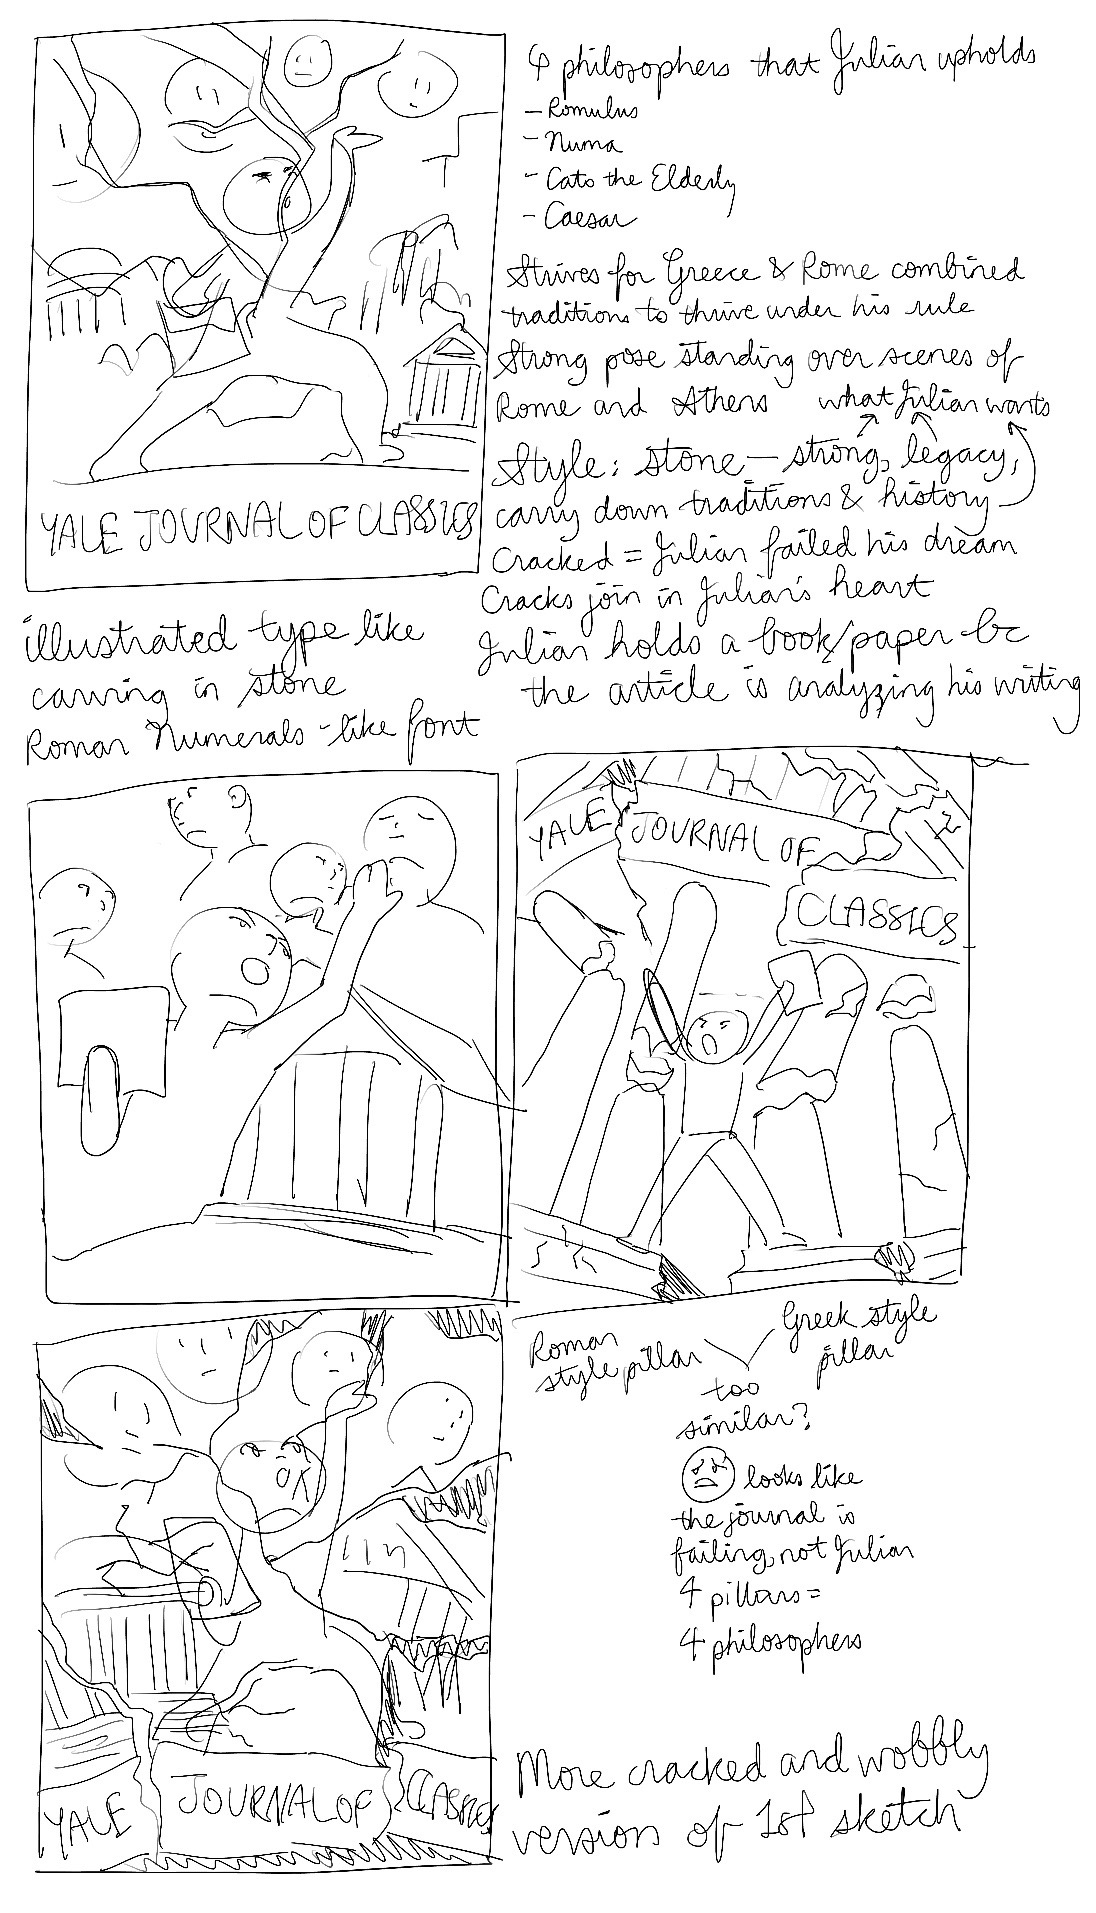 4 philosophers that Julian upholds
- Romulus
- Numa
- Cato the Elderly
- Caesar
Strives for Greece & Rome combined
traditions to thrive under his rule
Strong pose standing over scenes of
Rome and Athens what Julian wants
Style: stone - strong, legacy,
carry down traditions & history
Cracked = Julian failed his dream
Cracks join in Julian's heart
Julian holds a book/paper bc
the article is analyzing his writing
YALE JOURNAL OF CLASSICS
illustrated type like
carving in stone
Roman Numerals-like font
YALE JOURNAL OF
CLASSICS
Roman
style pillar
Greek style
pillar
too
similar?
looks like
the journal is
failing, not Julian
4 pillars =
4 philosophers
YALE JOURNAL OF CLASSICS
More cracked and wobbly
version of 1st sketch